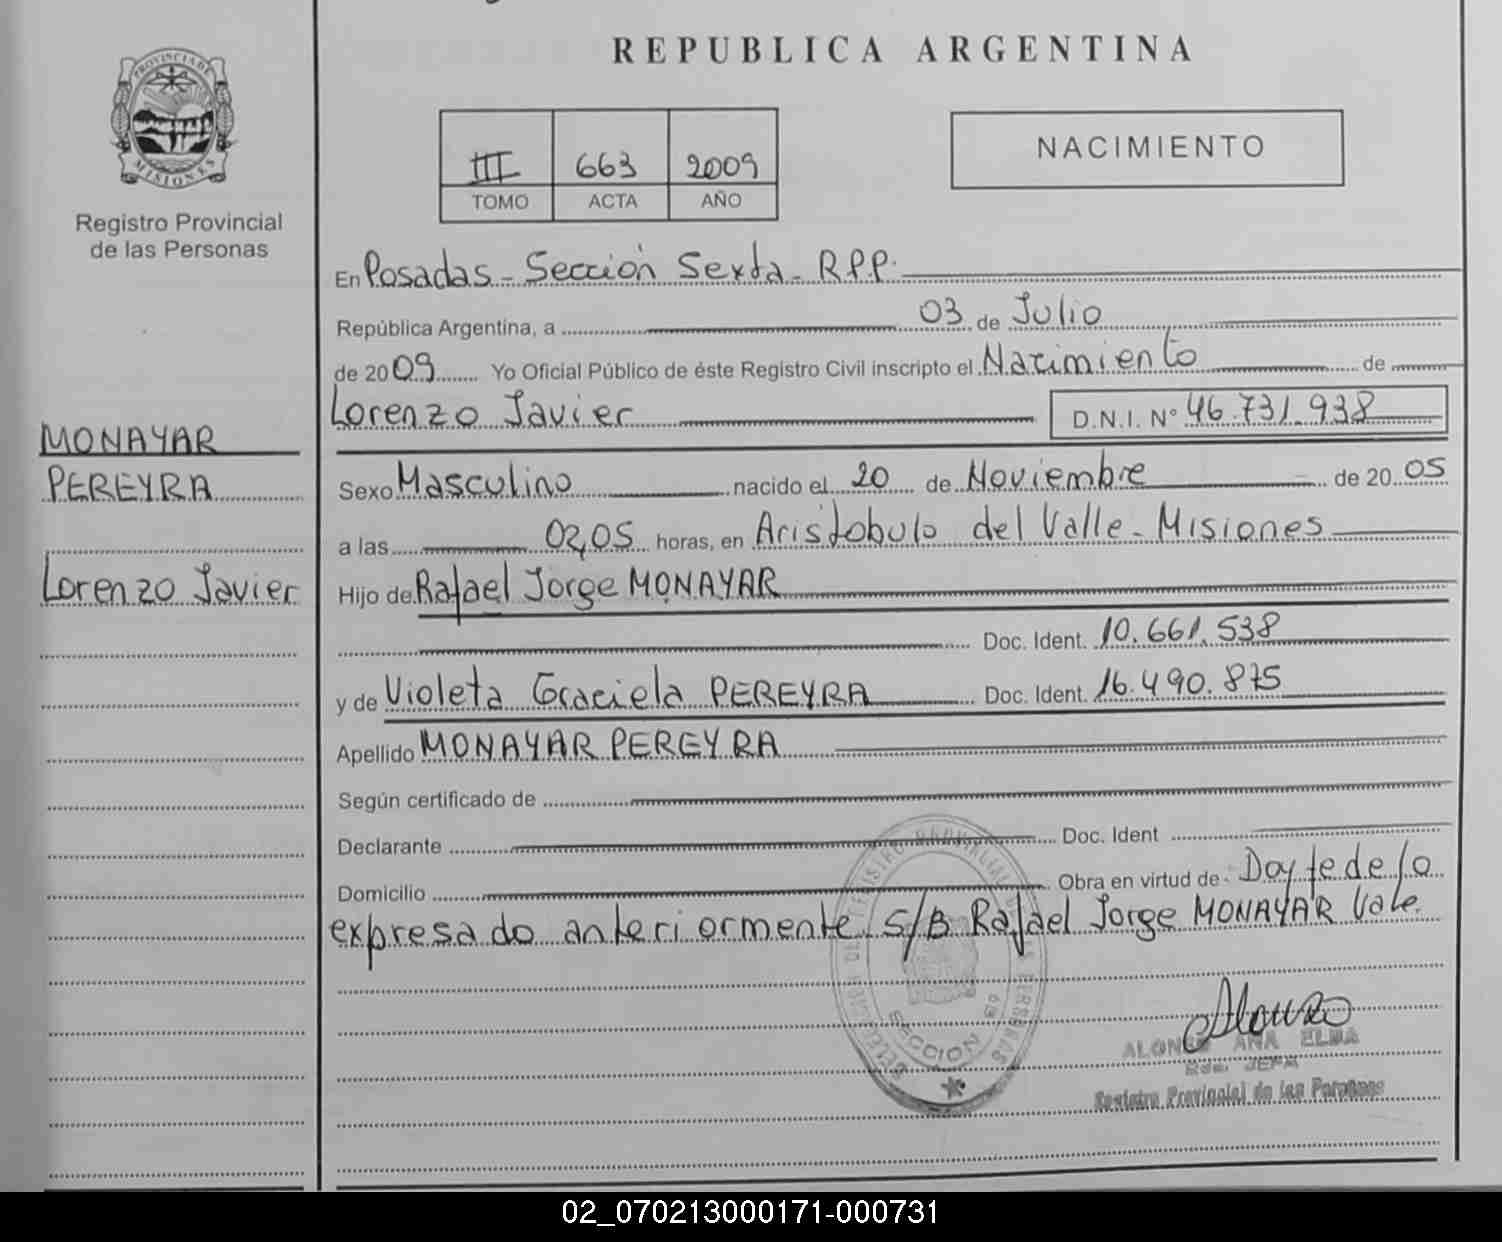 PROVINCIA DE
MISIONES
Registro Provincial
de las Personas
MONAYAR
PEREYRA
Lorenzo Javier
REPUBLICA ARGENTINA
III 663 2009
TOMO ACTA AÑO
NACIMIENTO
En Posadas - Sección Sexta - R.P.P.
República Argentina, a 03 de Julio
de 2009 Yo Oficial Público de éste Registro Civil inscripto el Nacimiento de
Lorenzo Javier D.N.I. Nº 46.731.938
Sexo Masculino nacido el 20 de Noviembre de 2005
a las 02,05 horas, en Aristobulo del Valle - Misiones
Hijo de Rafael Jorge MONAYAR
Doc. Ident. 10.661.538
y de Violeta Graciela PEREYRA Doc. Ident. 16.490.875
Apellido MONAYAR PEREYRA
Según certificado de
Declarante Doc. Ident
Domicilio Obra en virtud de Doy fe de lo
expresado anteriormente S/B Rafael Jorge MONAYAR Vale.
SECCION
ANA ELBA
JEFA
Registro Provincial de las Personas
02_070213000171-000731